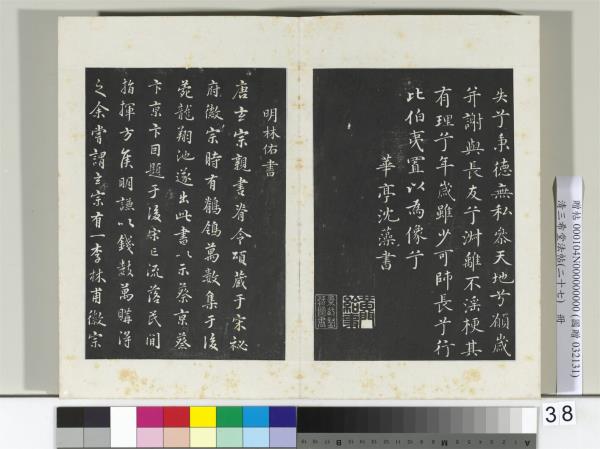 失兮秉德無私參天地兮願歲
并謝與長友兮淑離不淫梗其
有理兮年歲雖少可師長兮行
比伯夷置以為像兮
華亭沈藻書
明林佑書
唐玄宗親書脊令頌藏于宋秘
府徽宗時有鶺鴒萬數集于後
苑龍翔池遂出此書以示蔡京蔡
卞京卞因題于後宋亡流落民間
指揮方侯明謙以錢數萬購得
之余嘗謂玄宗有一李林甫徽宗
贈帖 000104N000000000 (國贈 032131)
清三希堂法帖(二十七) 冊
38